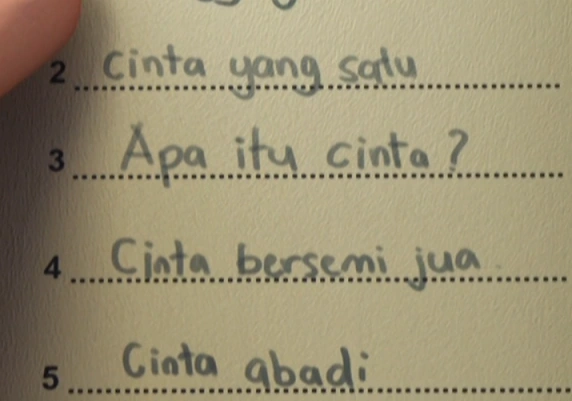 2 Cinta yang satu
3 Apa itu cinta?
4 Cinta bersemi jua
5 Cinta abadi